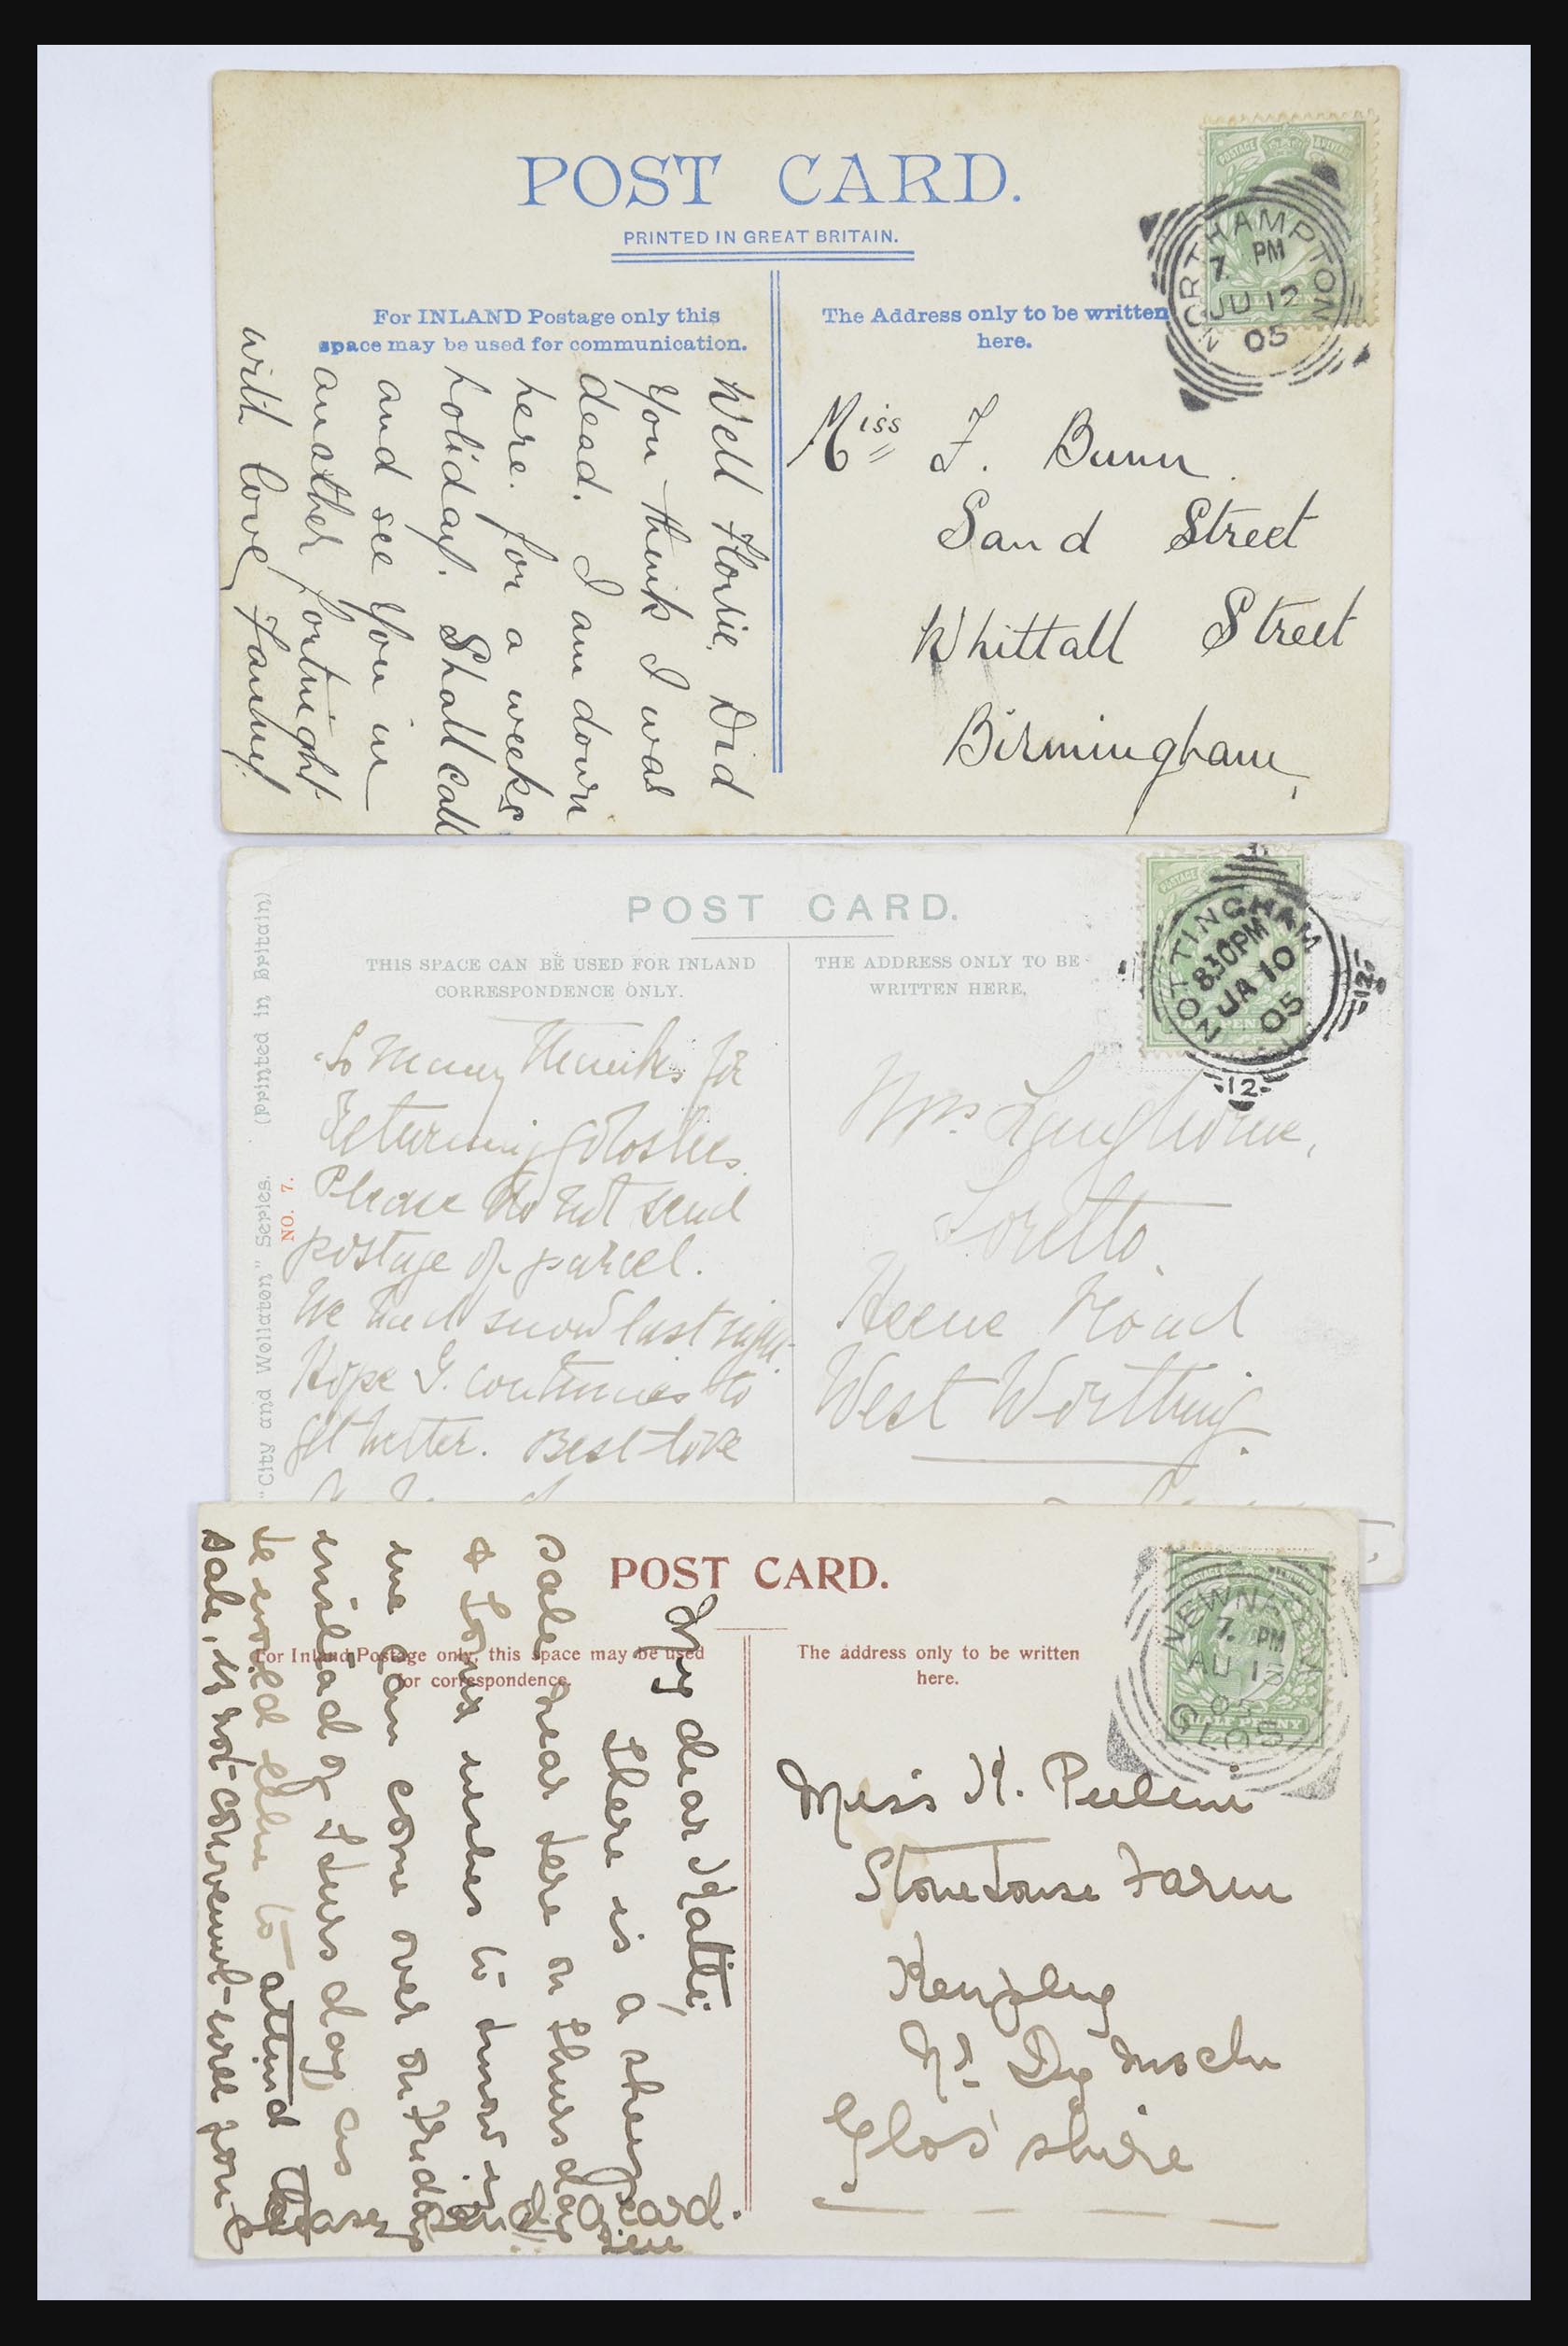 POST CARD.
PRINTED IN GREAT BRITAIN.
For INLAND Postage only this
space may be used for communication.
The Address only to be written
here.
NORTHAMPTON
7. PM
JU 12
05
Well Florie, Did
you think I was
dead. I am down
here. for a weeks
holiday. Shall call
and see you in
another fortnight
with love Fanny.
Miss F. Bunn
Sand Street
Whittall Street
Birmingham,
POST CARD.
THIS SPACE CAN BE USED FOR INLAND
CORRESPONDENCE ONLY.
THE ADDRESS ONLY TO BE
WRITTEN HERE.
NOTTINGHAM
8.30PM
JA 10
05
12
12
"City and Wollaton" Series. (Printed in Britain)
NO. 7.
So many thanks for
returning goloshes.
Please do not send
postage of parcel.
We had snow last night.
Hope G. continues to
get better. Best love
Mrs. Langhorne,
Loretto,
Heene Road
West Worthing.
POST CARD.
For Inland Postage only, this space may be used
for correspondence.
The address only to be written
here.
NEWNHAM
7. PM
AU 15
05
GLOS
HALFPENNY
My dear Katie,
There is a sheep
sale near here on Thursday
& Louis wishes to know if
we can come over on Friday
instead of Thursday as
he would like to attend the
sale, if not convenient will you
please send a card.
Miss K.
Stonehouse Farm
Kempley
Nr. Dymock
Glos'shire